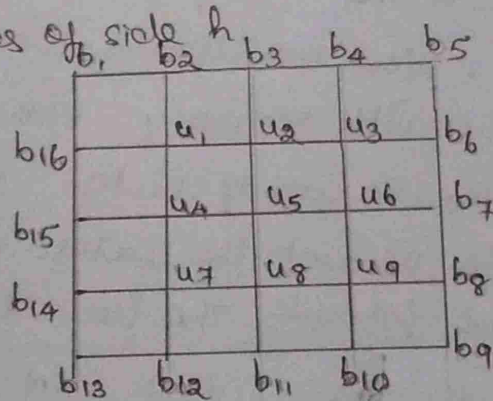 s of side h
b1 b2 b3 b4 b5
u1 u2 u3 b6
b16
u4 u5 u6 b7
b15
u7 u8 u9 b8
b14
b9
b13 b12 b11 b10